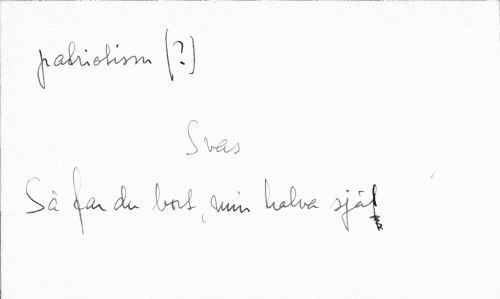 patriotism [?]
Svas
Så far du bort, min halva själ